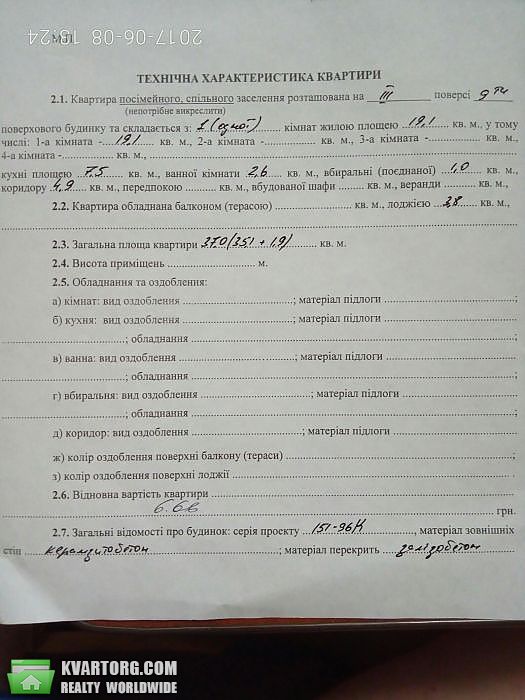 2017-06-08 15:24
ТЕХНІЧНА ХАРАКТЕРИСТИКА КВАРТИРИ
2.1. Квартира посімейного, спільного заселення розташована на III поверсі 9ти
(непотрібне викреслити)
поверхового будинку та складається з: 1 (одної) кімнат жилою площею 19,1 кв. м., у тому
числі: 1-а кімната - 19,1 кв. м., 2-а кімната - кв. м., 3-а кімната - кв. м.,
4-а кімната - кв. м.,
кухні площею 7,5 кв. м., ванної кімнати 2,6 кв. м., вбиральні (поєднаної) 1,0 кв. м.,
коридору 4,9 кв. м., передпокою кв. м., вбудованої шафи кв. м., веранди кв. м.,
2.2. Квартира обладнана балконом (терасою) кв. м., лоджією 3,8 кв. м.,
2.3. Загальна площа квартири 37,0 (35,1 + 1,9) кв. м.
2.4. Висота приміщень м.
2.5. Обладнання та оздоблення:
а) кімнат: вид оздоблення ; матеріал підлоги ;
б) кухня: вид оздоблення ; матеріал підлоги
; обладнання
в) ванна: вид оздоблення ; матеріал підлоги
; обладнання
г) вбиральня: вид оздоблення ; матеріал підлоги
; обладнання
д) коридор: вид оздоблення ; матеріал підлоги
ж) колір оздоблення поверхні балкону (тераси) ;
з) колір оздоблення поверхні лоджії
2.6. Відновна вартість квартири
грн.
2.7. Загальні відомості про будинок: серія проекту , матеріал зовнішніх
стін керамзитобетон ; матеріал перекрить залізобетон
KVARTORG.COM
REALTY WORLDWIDE